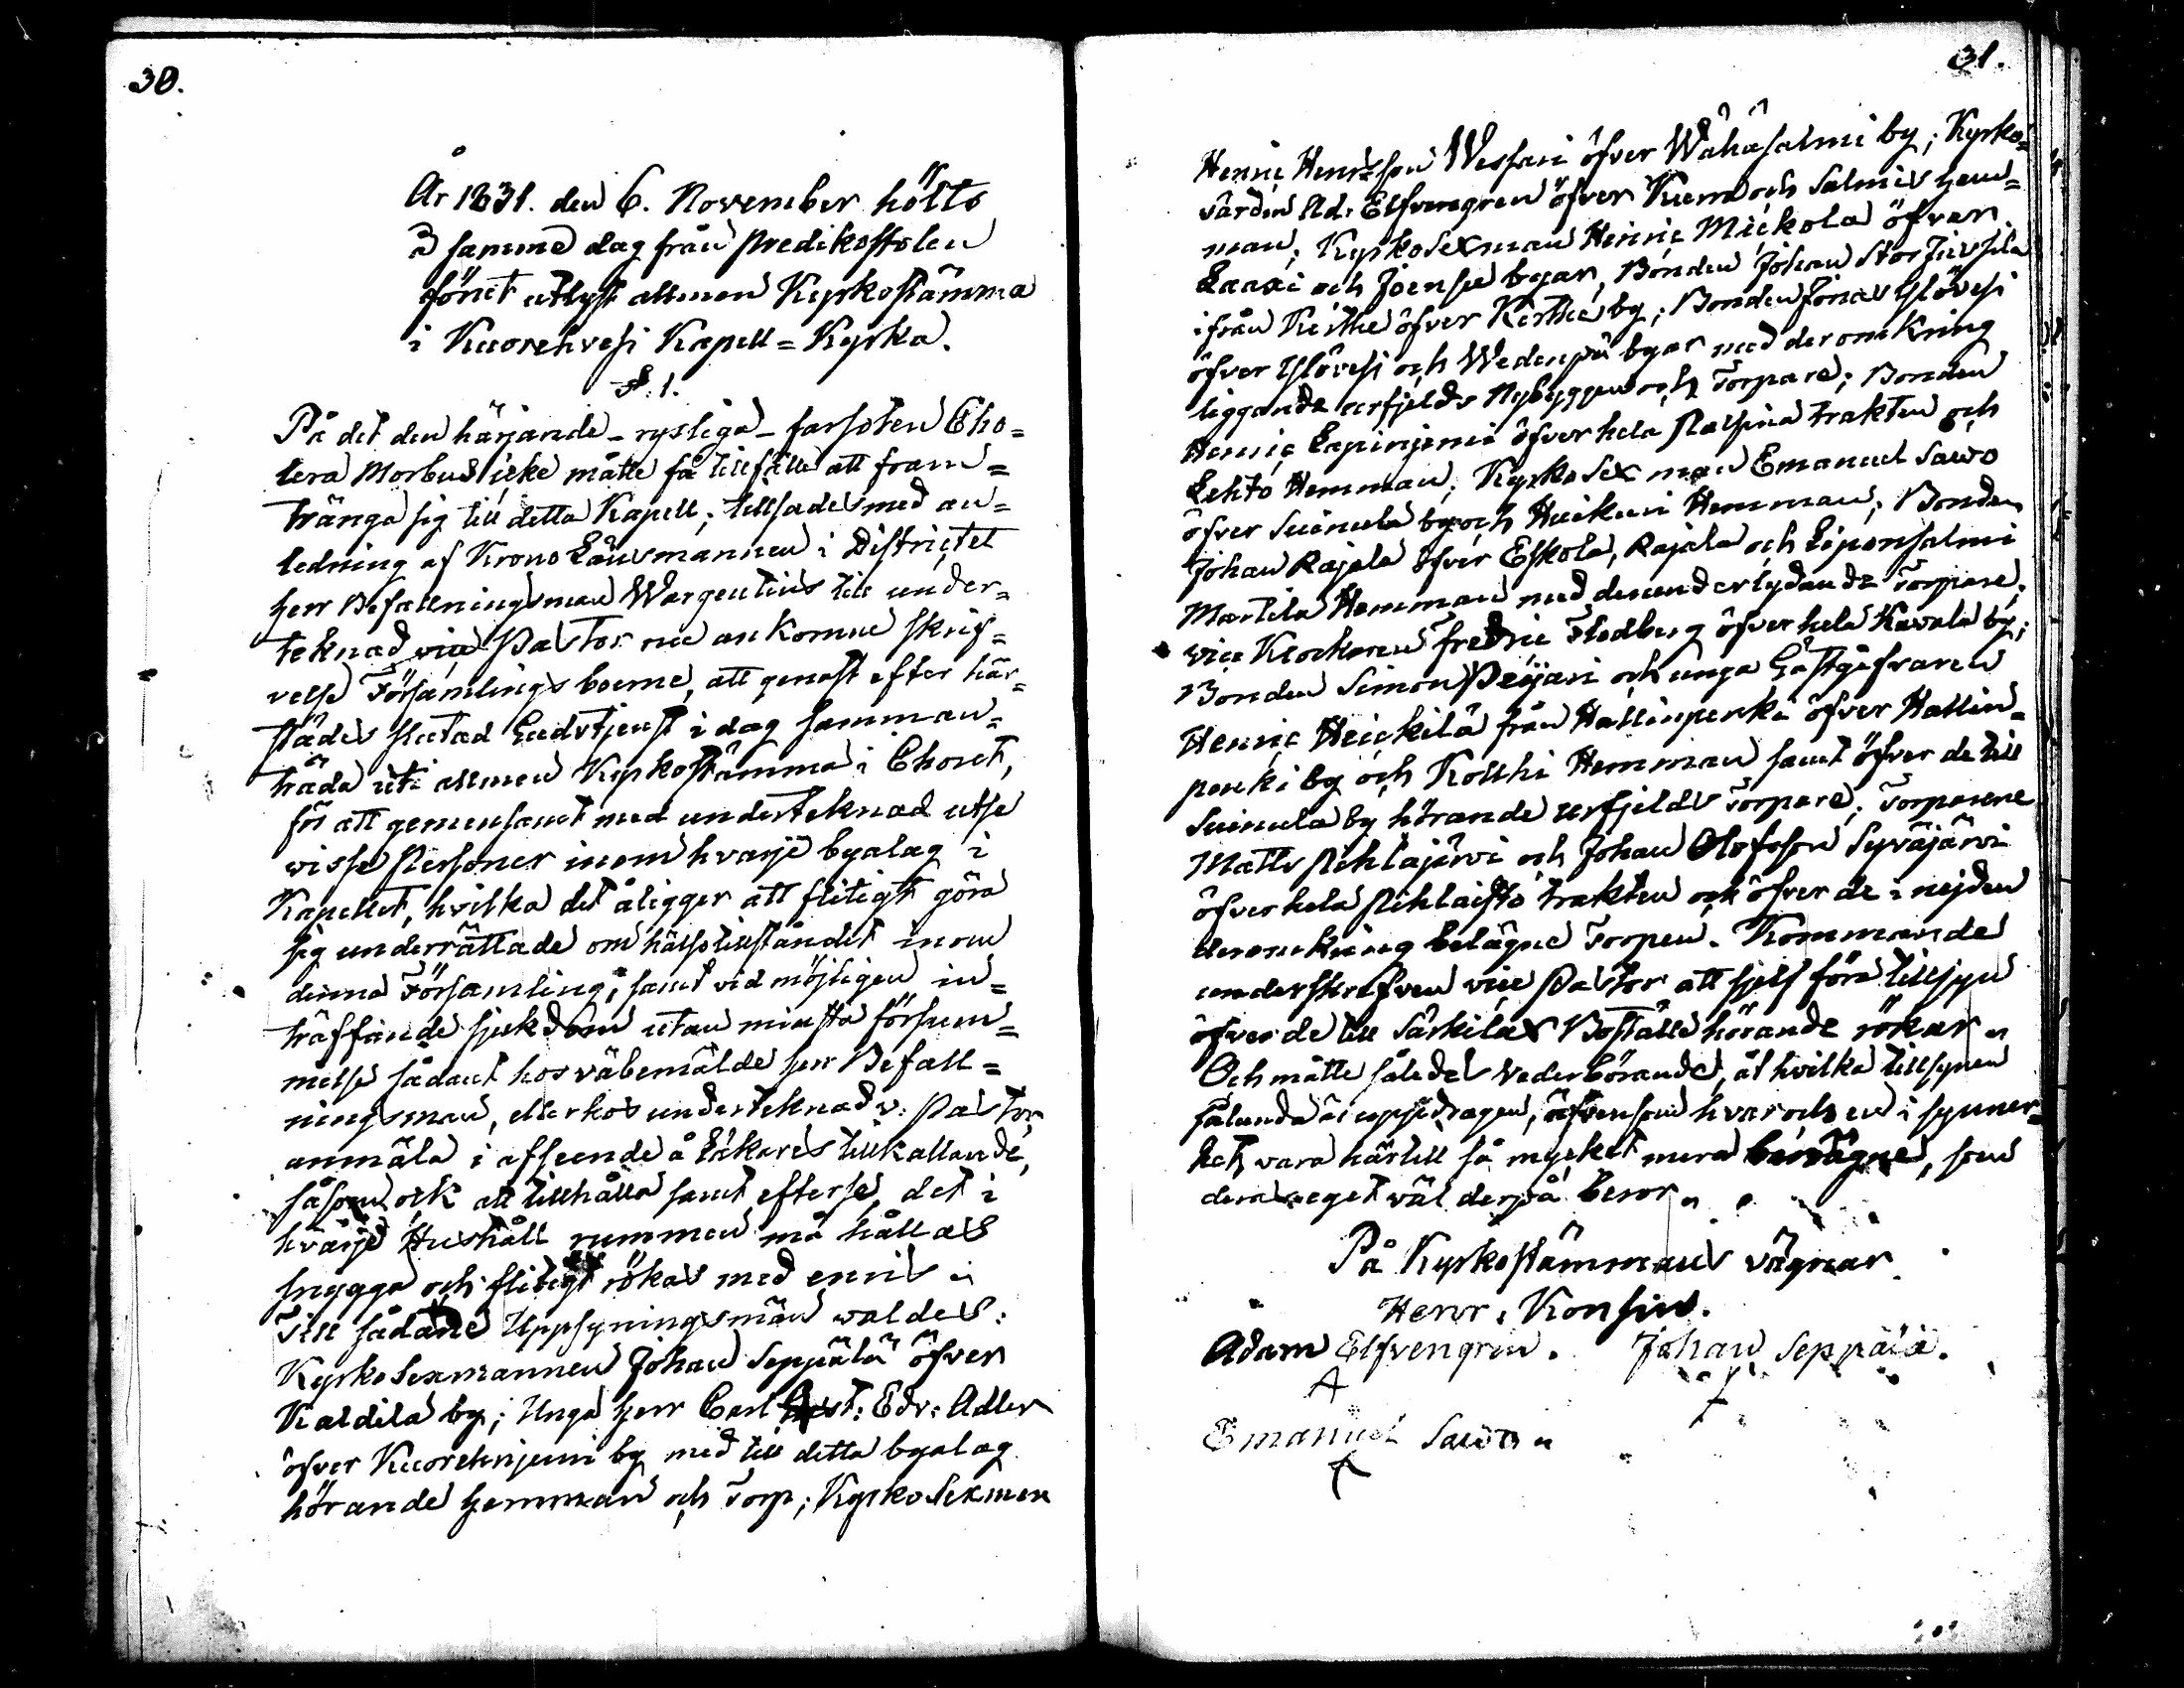 30.
År 1831. den 6. November hölts
å samme dag från predikostolen
förut utlyst allmen Kyrkostämma
i Kuorehvesi Kapell=Kyrka.
§. 1.
På det den härjande - rysliga - farsoten Cho=
lera Morbus icke måtte få tillfälle att fram=
tränga sig till detta Kapell; tillsades med an=
ledning af Krono Länsmannen i Districtet
herr Befallningsman Wargentins till under=
teknad vice Pastor nu ankomne skrif=
velse Församlingsboerne, att genast efter här=
städes slutad Gudstjenst i dag samman=
träda uti allmen Kyrkostämma i Choret,
för att gemensamt med underteknad utse
visse Personer inom hvarje byalag i
Kapellet, hvilka det åligger att flitigt göra
sig underrättade om hälsotillståndet inom
denna Församling; samt vid möjligen in=
träffande sjukdom utan minsta försum=
melse sådant hos välbemälde herr Befall=
ningsman, eller hos underteknad v. Pastor
anmäla i afseende å Läkares tillkallande,
såsom ock att tillhålla samt efterse, det i
hvarje Hushåll rummen må hållas
snygga och flitigt rökas med enris
Till sådane Uppsyningsmän valdes:
Kyrko Sexmannen Johan Seppälä öfver
Kaldila by; Unga herr Carl Gust: Edv: Adler
öfver Kuorehnjemi by med till detta byalag
hörande hemman och Torp; Kyrko Sexmen
31.
Henric Henrsson Wessari öfver Wähäsalmi by; Kyrko=
värden Ad: Elfvengren öfver och Salmis hem=
man; Kyrko Sexman Henric Mickola öfver
Laaxi och Joensu byar, Bonden Johan Stor
ifrån Kerthe öfver Kerthe by; Bonden Jonas Ylövesi
öfver Ylövesi och Wedenpä byar med deromkring
liggande utfjelds Nybyggen och Torpare; Bonden
Henric Lapinjemi öfver hela trakten och
Lehtö Hemman; Kyrko Sex man Emanuel Sawo
öfver Suinula by och Huikuri Hemman; Bonden
Johan Rajala öfver Eskola, Rajala och Liponsalmi
Martila Hemman med derunderlydande Torpare;
vice Klockaren Fredric Flodberg öfver hela Kavala by;
Bonden Simon Peijari och unga Gästgifvaren
Henric Heickilä från Hallinpenki öfver Hallin=
penki by och Kolthi Hemman samt öfver de till
Suinula by hörande utfjelds Torpare; Torparene
Matts Pihlajärvi och Johan Olofsson Syväjärvi
öfver hela Pihlaisto trakten och öfver de i nejden
deromkring belägne Torpen. Kommande
underskrefven vice Pastor att sjelf föra tillsyn
öfver de till Särkilax Boställe hörande rökar.
Och måtte således Vederbörande, åt hvilka tillsynen
sålunda är uppdragen, äfvensom hvar och en i synner=
het, vara härtill så mycket mera benägne, som
deras eget väl derpå beror.
På Kyrkostämmans vägnar
Henr. Konsin.
Adam Elfvengren. Johan Seppälä.
Emanuel Sawo